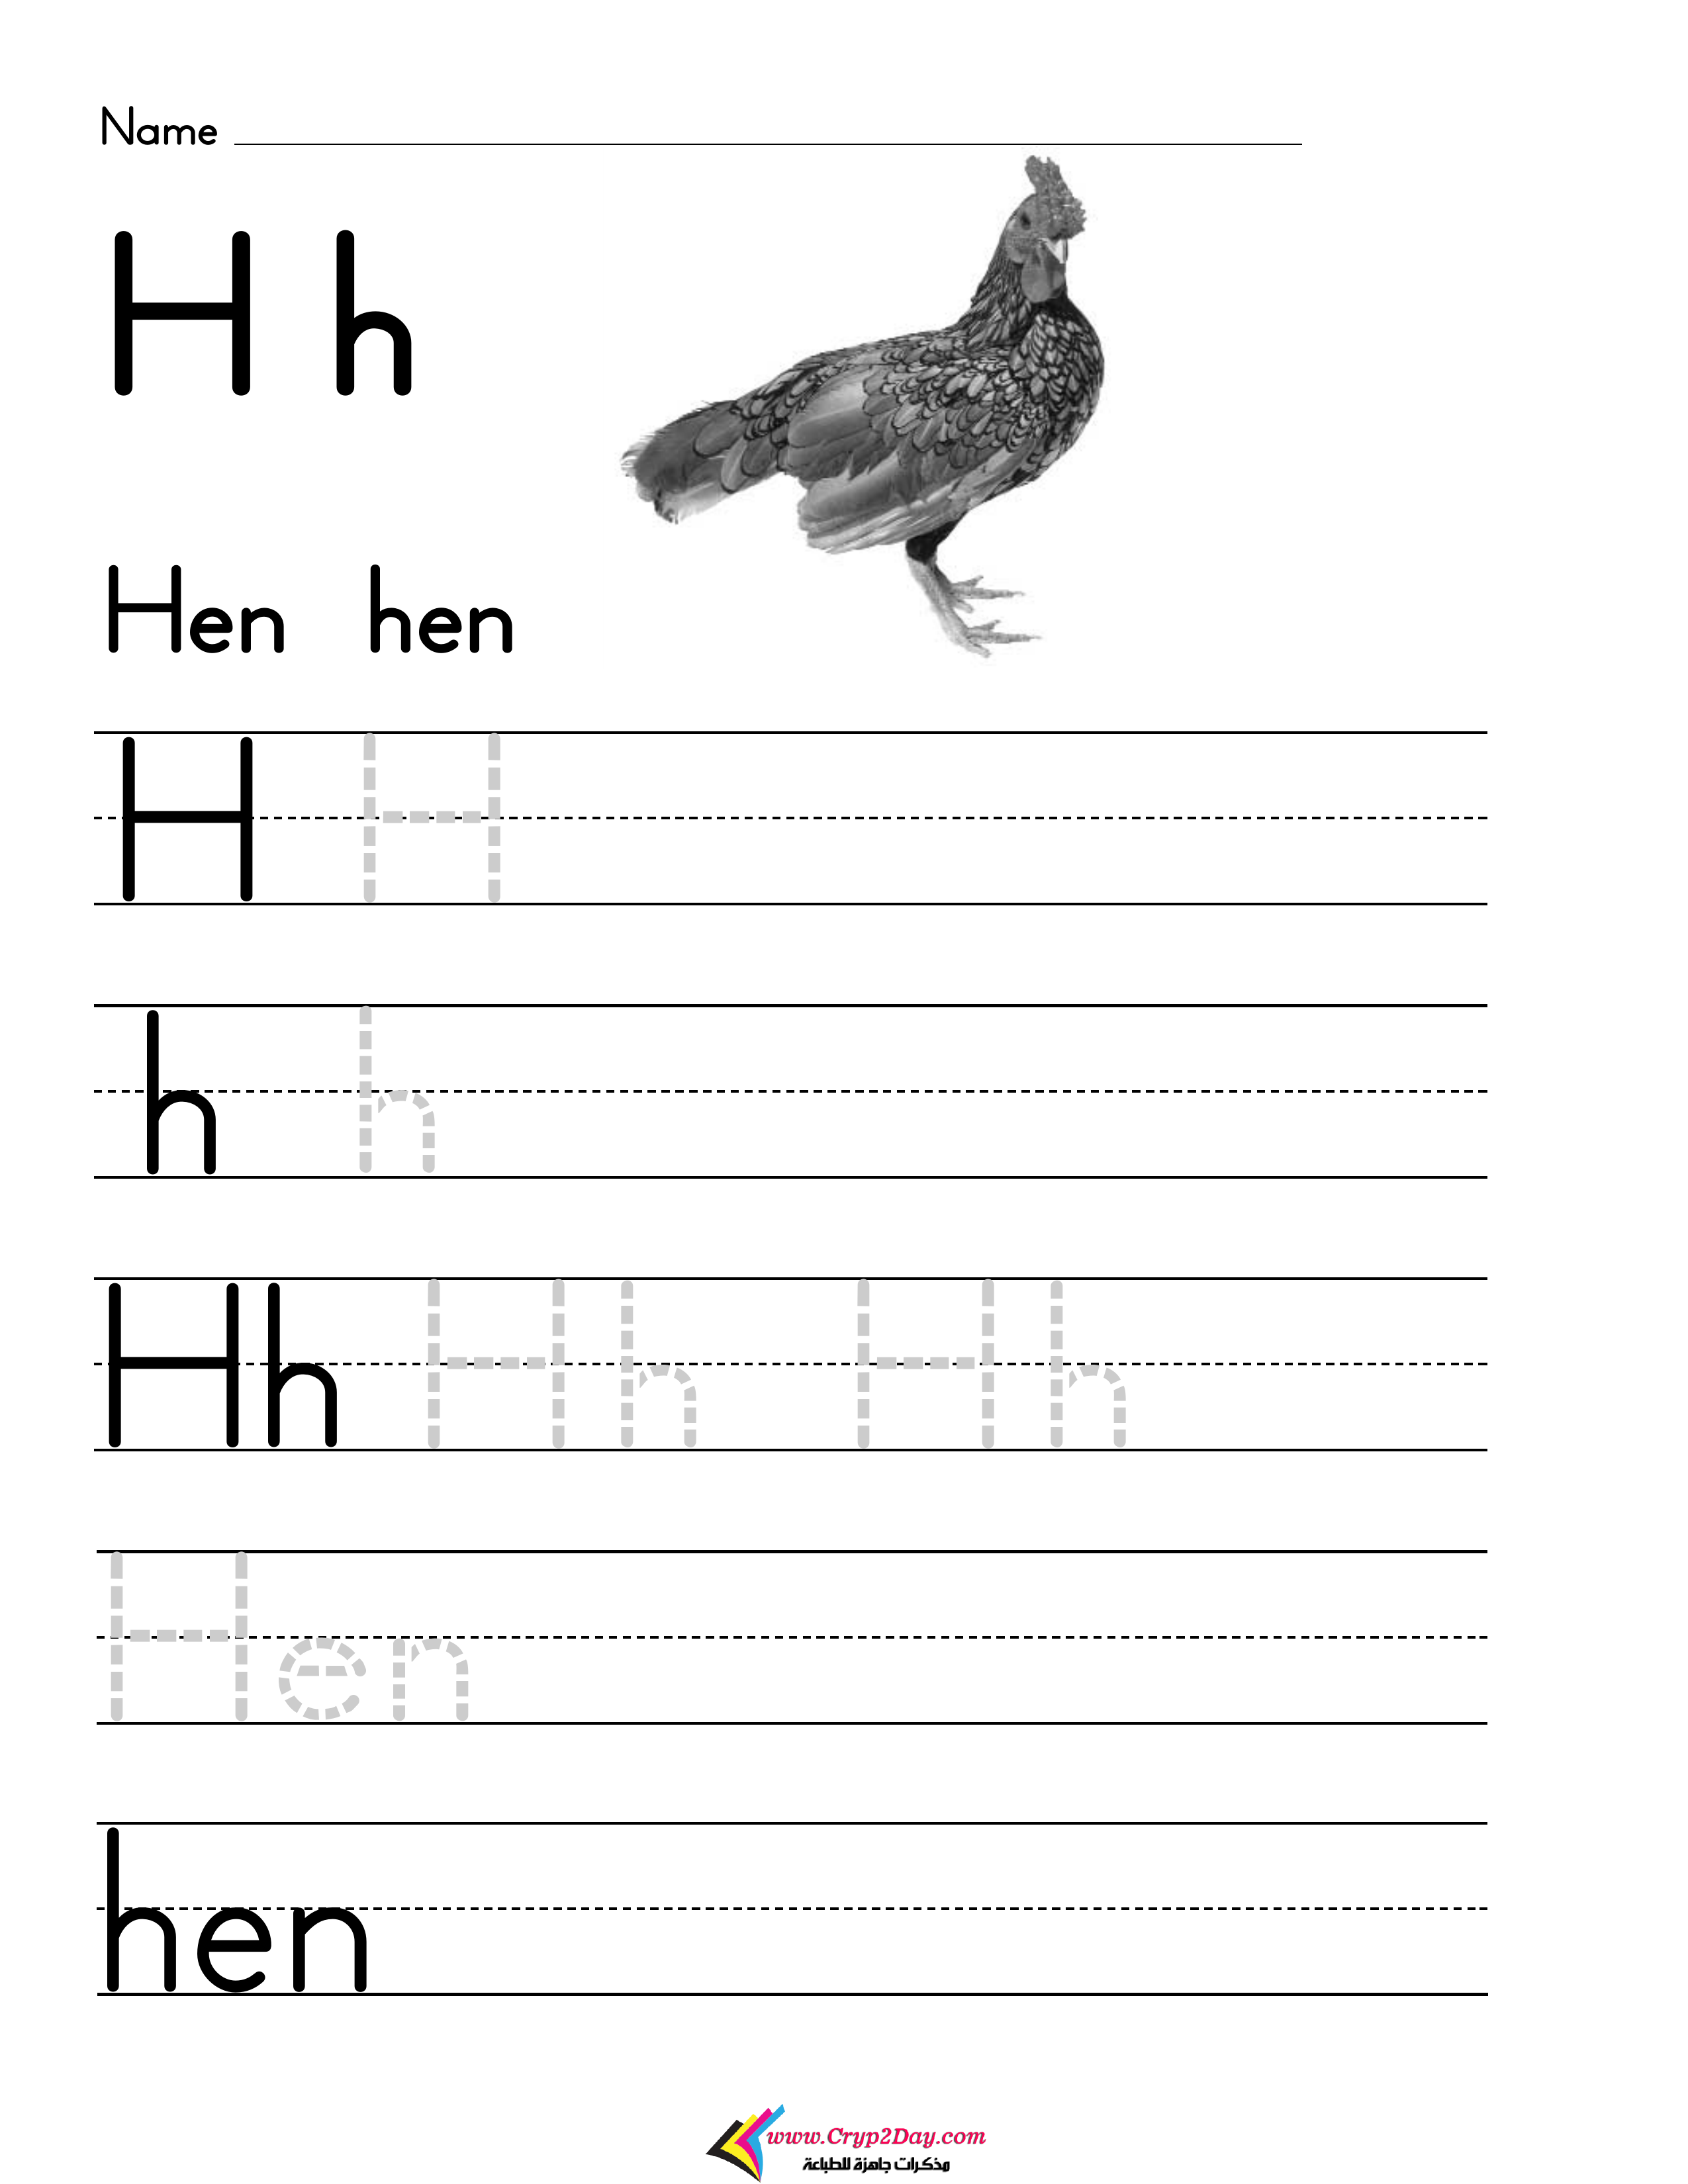 Name
H h
Hen hen
H H
h h
Hh Hh Hh
Hen
hen
www.Cryp2Day.com
مذكرات جاهزة للطباعة